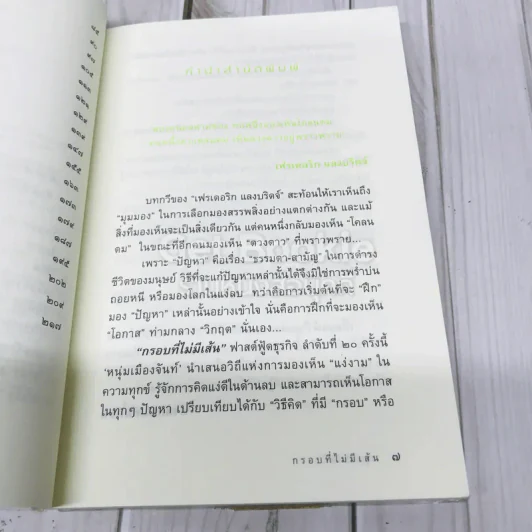 ๘๕
๙๐
๙๗
๑๐๕
๑๑๓
๑๒๑
๑๒๙
๑๓๙
๑๔๗
๑๕๕
๑๖๓
๑๗๑
๑๗๙
๑๘๗
๑๙๕
๒๐๒
๒๐๙
๒๑๗
คำนำสำนักพิมพ์
เฟรเดอริก แลงบริดจ์
บทกวีของ “เฟรเดอริก แลงบริดจ์” สะท้อนให้เราเห็นถึง
“มุมมอง” ในการเลือกมองสรรพสิ่งอย่างแตกต่างกัน และแม้
สิ่งที่มองเห็นจะเป็นสิ่งเดียวกัน แต่คนหนึ่งกลับมองเห็น “โคลน
ตม” ในขณะที่อีกคนมองเห็น “ดวงดาว” ที่พราวพราย...
เพราะ “ปัญหา” คือเรื่อง “ธรรมดา-สามัญ” ในการดำรง
ชีวิตของมนุษย์ วิธีที่จะแก้ปัญหาเหล่านั้นได้จึงมิใช่การพร่ำบ่น
ถอยหนี หรือมองโลกในแง่ลบ ทว่าคือการเริ่มต้นที่จะ “ฝึก”
มอง “ปัญหา” เหล่านั้นอย่างเข้าใจ นั่นคือการฝึกที่จะมองเห็น
“โอกาส” ท่ามกลาง “วิกฤต” นั่นเอง...
“กรอบที่ไม่มีเส้น” ฟาสต์ฟู้ดธุรกิจ ลำดับที่ ๒๐ ครั้งนี้
‘หนุ่มเมืองจันท์’ นำเสนอวิถีแห่งการมองเห็น “แง่งาม” ใน
ความทุกข์ รู้จักการคิดแง่ดีในด้านลบ และสามารถเห็นโอกาส
ในทุกๆ ปัญหา เปรียบเทียบได้กับ “วิธีคิด” ที่มี “กรอบ” หรือ
กรอบที่ไม่มีเส้น ๗